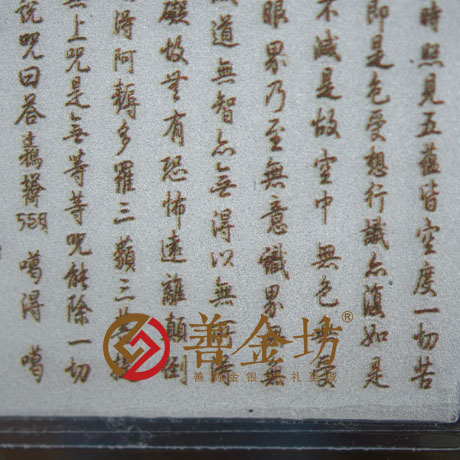 時照見五蘊皆空度一切苦
即是色受想行識亦復如是
不減是故空中無色無受
眼界乃至無意識界無無
道無智亦無得以無所得
礙故無有恐怖遠離顛倒
得阿耨多羅三藐三菩提
無上咒是無等等咒能除一切
說咒曰 噶得 噶
善金坊®